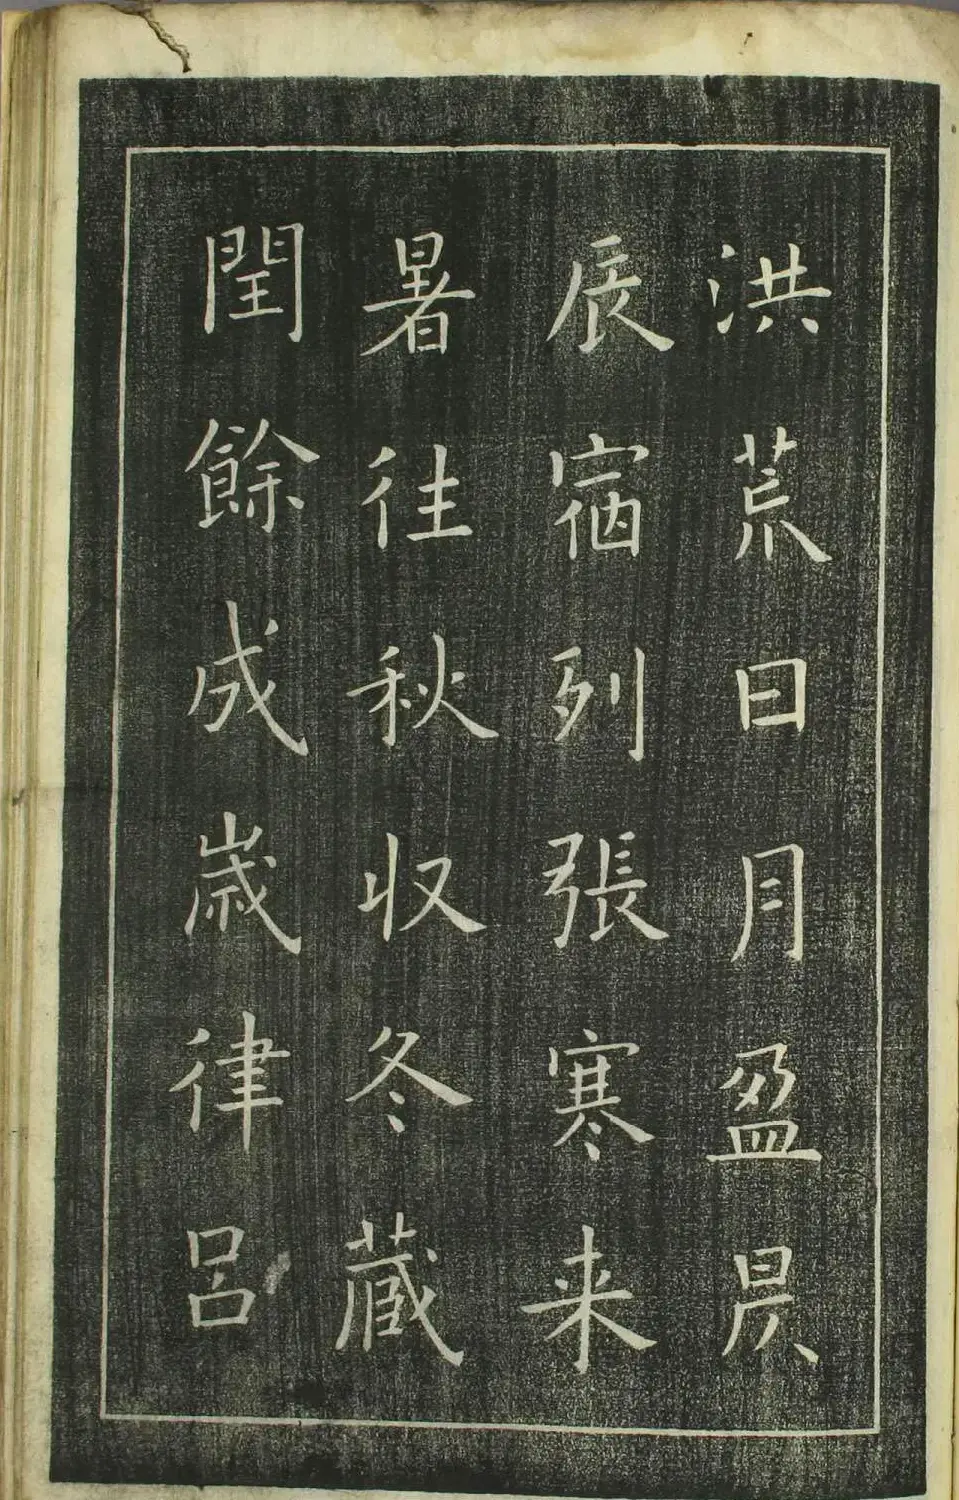 洪荒日月盈昃
辰宿列張寒来
暑往秋収冬蔵
閏餘成歳律呂